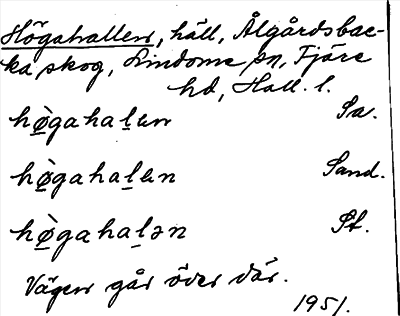 Högahallen, häll, Ålgårdsbac-
ka skog, Lindome sn, Fjäre
hd, Hall. l.
hø̀gahaḷen Sa.
hø̀gahaḷen Sand.
hø̀gahaḷən St.
Vägen går över där.
1951.